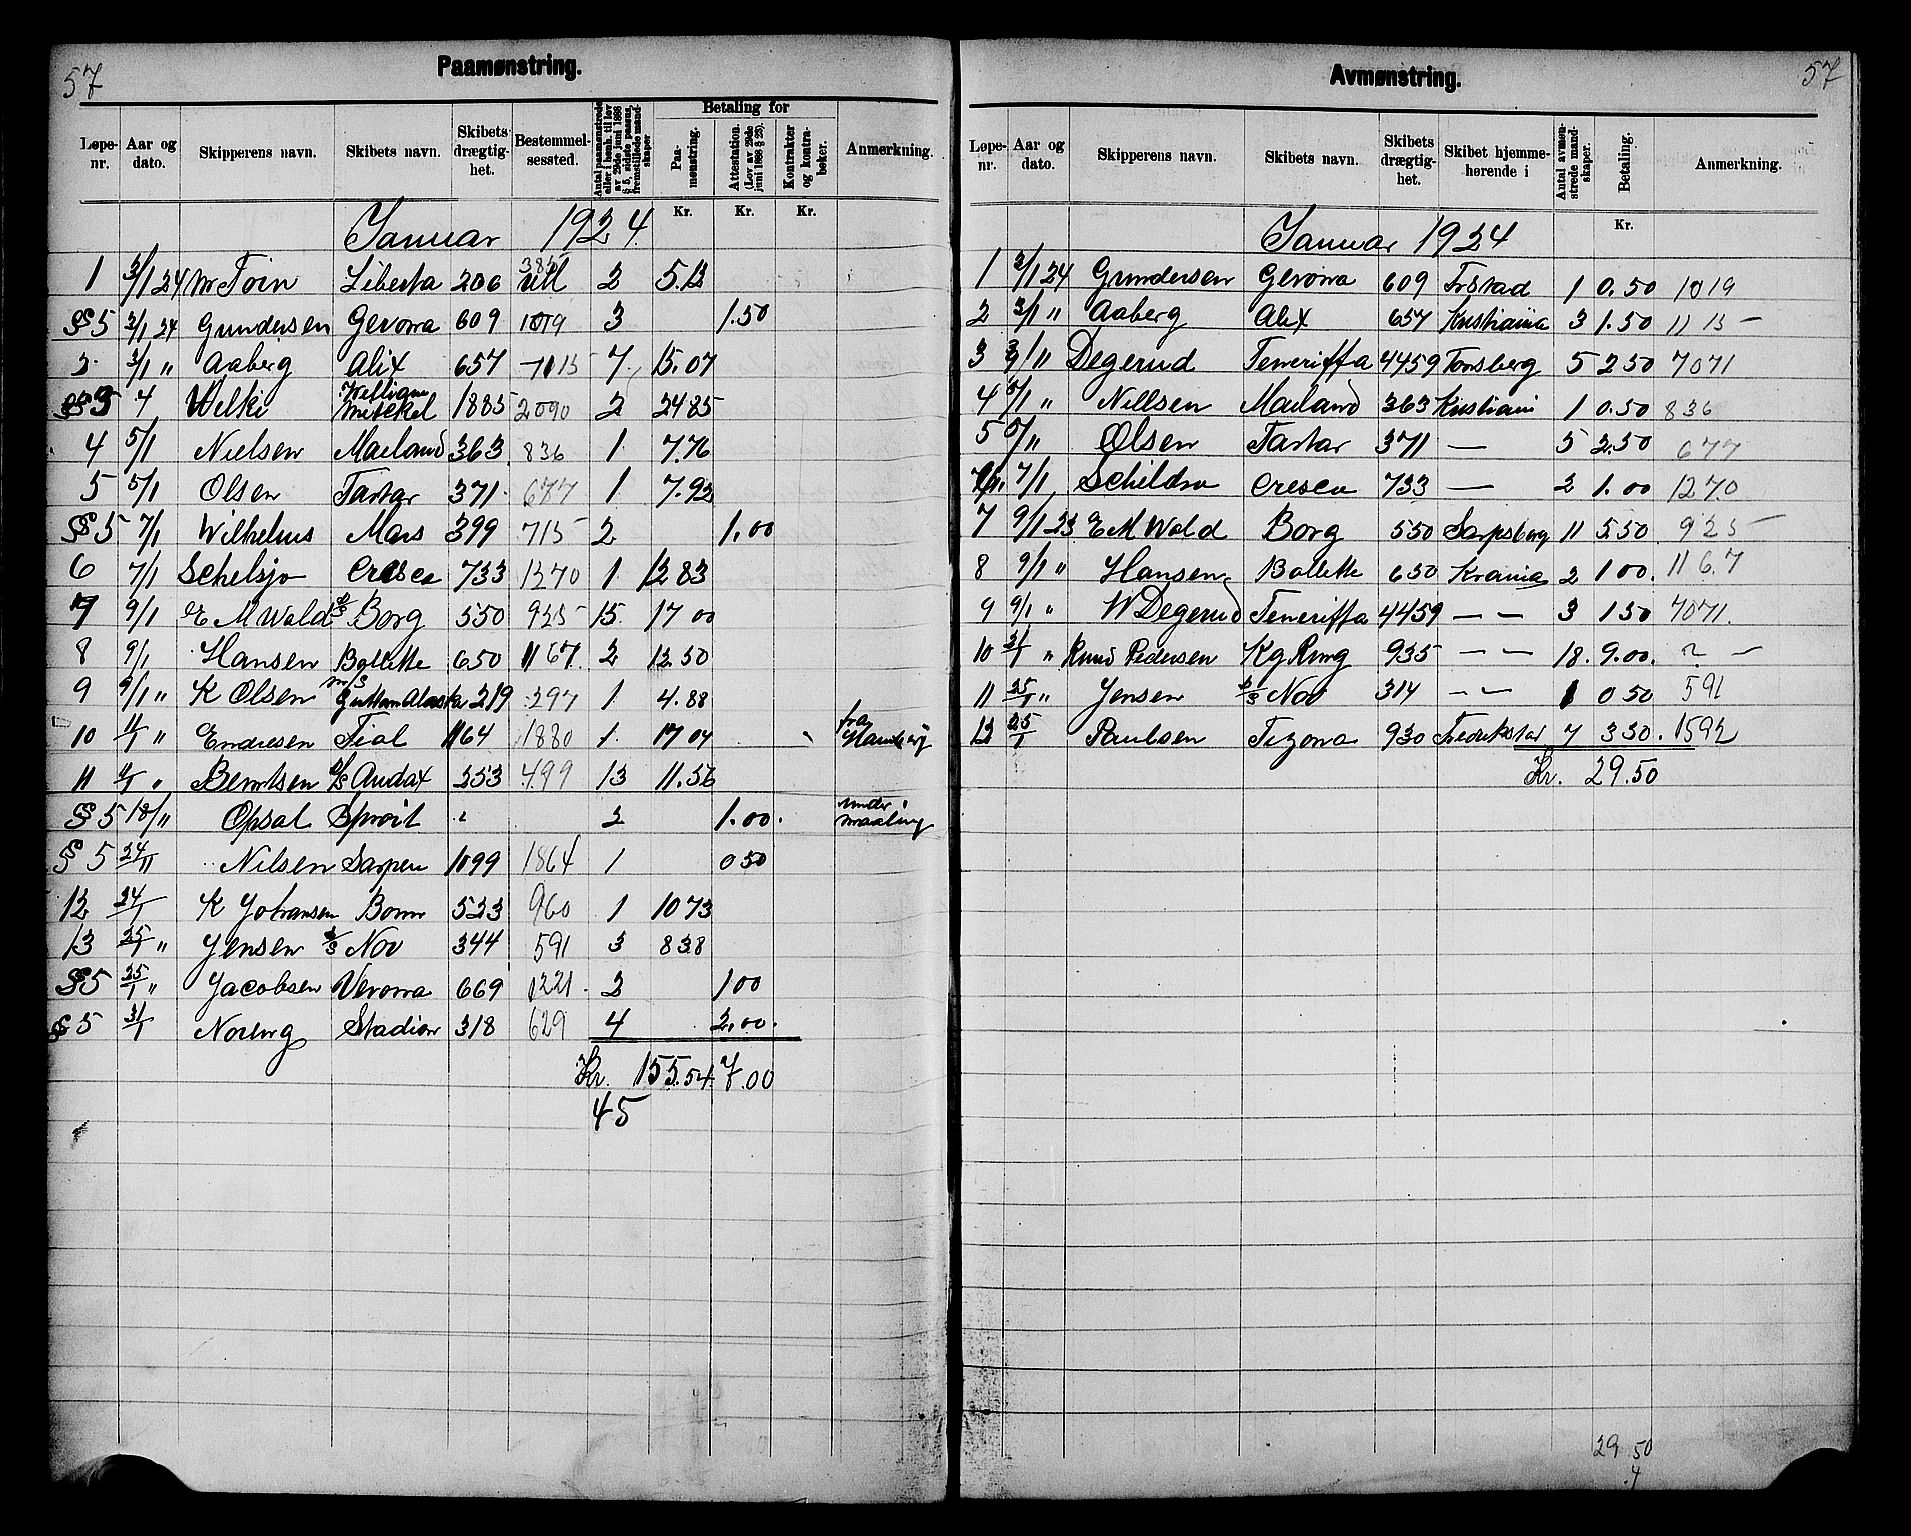 57
Paamønstring.
Løpe-nr. Aar og dato. Skipperens navn. Skibets navn. Skibets drægtig-het. Bestemmel-sessted. Antal paamønstrede eller i henh. til lov av 29de juni 1888 § 5, sidste passus, fremstillede mand-skaper Betaling for Paa-mønstring. Attestation. (Lov av 29de juni 1888 § 25). Kontrakter og kontra-bøker. Anmerkning.
Kr. Kr. Kr.
Januar 1924.
1 2/1 24 Liberta 206 2 5.12
§ 5 2/1 24 Gundersen Gerona 609 1019 3 1.50
2 3/1 " Aaberg Alix 657 1115 7 15.07
4 Wilki William Mitchel 1885 2090 2 24 85
4 5/1 Nielsen Mailand 363 836 1 7.76
5 5/1 Olsen Tartar 371 677 1 7.92
§ 5 7/1 Wilhelms Mars 399 715 2 1.00
6 7/1 Schelsjo Cresco 733 1270 1 12 83
7 9/1 E M Wold D/S Borg 550 925 15 17 00
8 9/1 Hansen Bollette 650 1167 2 12.50
9 9/1 " K Olsen M/S 219 297 1 4.88
10 11/1 " Endresen Fial 1164 1880 1 17 04 fra Hamburg
11 11/1 " Berntsen D/S Audax 253 499 13 11.56
§ 5 18/1 " Opsal Sprøit " 2 1.00. under maaling
§ 5 24/1 Nilsen Sarpen 1099 1864 1 0 50
12 24/1 K Johansen Bonn 523 960 1 10 73
13 25/1 " Jensen D/S Nov 344 591 3 8 38
§ 5 25/1 " Jacobsen Verona 669 1221 2 1 00
§ 5 31/1 Noreng Stadion 318 629 4 2.00.
Kr. 155.54 7.00
45
57
Avmønstring.
Løpe-nr. Aar og dato. Skipperens navn. Skibets navn. Skibets drægtig-het. Skibet hjemme-hørende i Antal avmøn-strede mand-skaper. Betaling. Anmerkning.
Kr.
Januar 1924
1 2/1 24 Gundersen Gerona 609 Frstad 1 0.50 1019
2 3/1 " Aaberg Alix 657 Kristiania 3 1.50 1115 —
3 3/1 " Degerud Teneriffa 4459 Tønsberg 5 2 50 7071
4 5/1 " Nillsen Mailand 363 Kristiani 1 0.50 836
5 5/1 " Olsen Tartar 371 — 5 2.50 677
7/1 Cresco 733 — 2 1.00 1270
7 9/1 23 E M Wold Borg 550 Sarpsborg 11 5 50 925 —
8 9/1 " Hansen Bollette 650 Krania 2 1 00. 1167
9 9/1 " W Degerud Teneriffa 4459 — — 3 1 50 7071.
10 21/1 " Knud Pedersen Kg Ring 935 — — 18. 9.00. ? —
11 25/1 " Jensen D/S Nov 314 — — 1 0 50 591
12 25/1 Paulsen Tizona 930 Fredrikstad 7 3 50. 1592
Kr. 29.50
29 50
.4